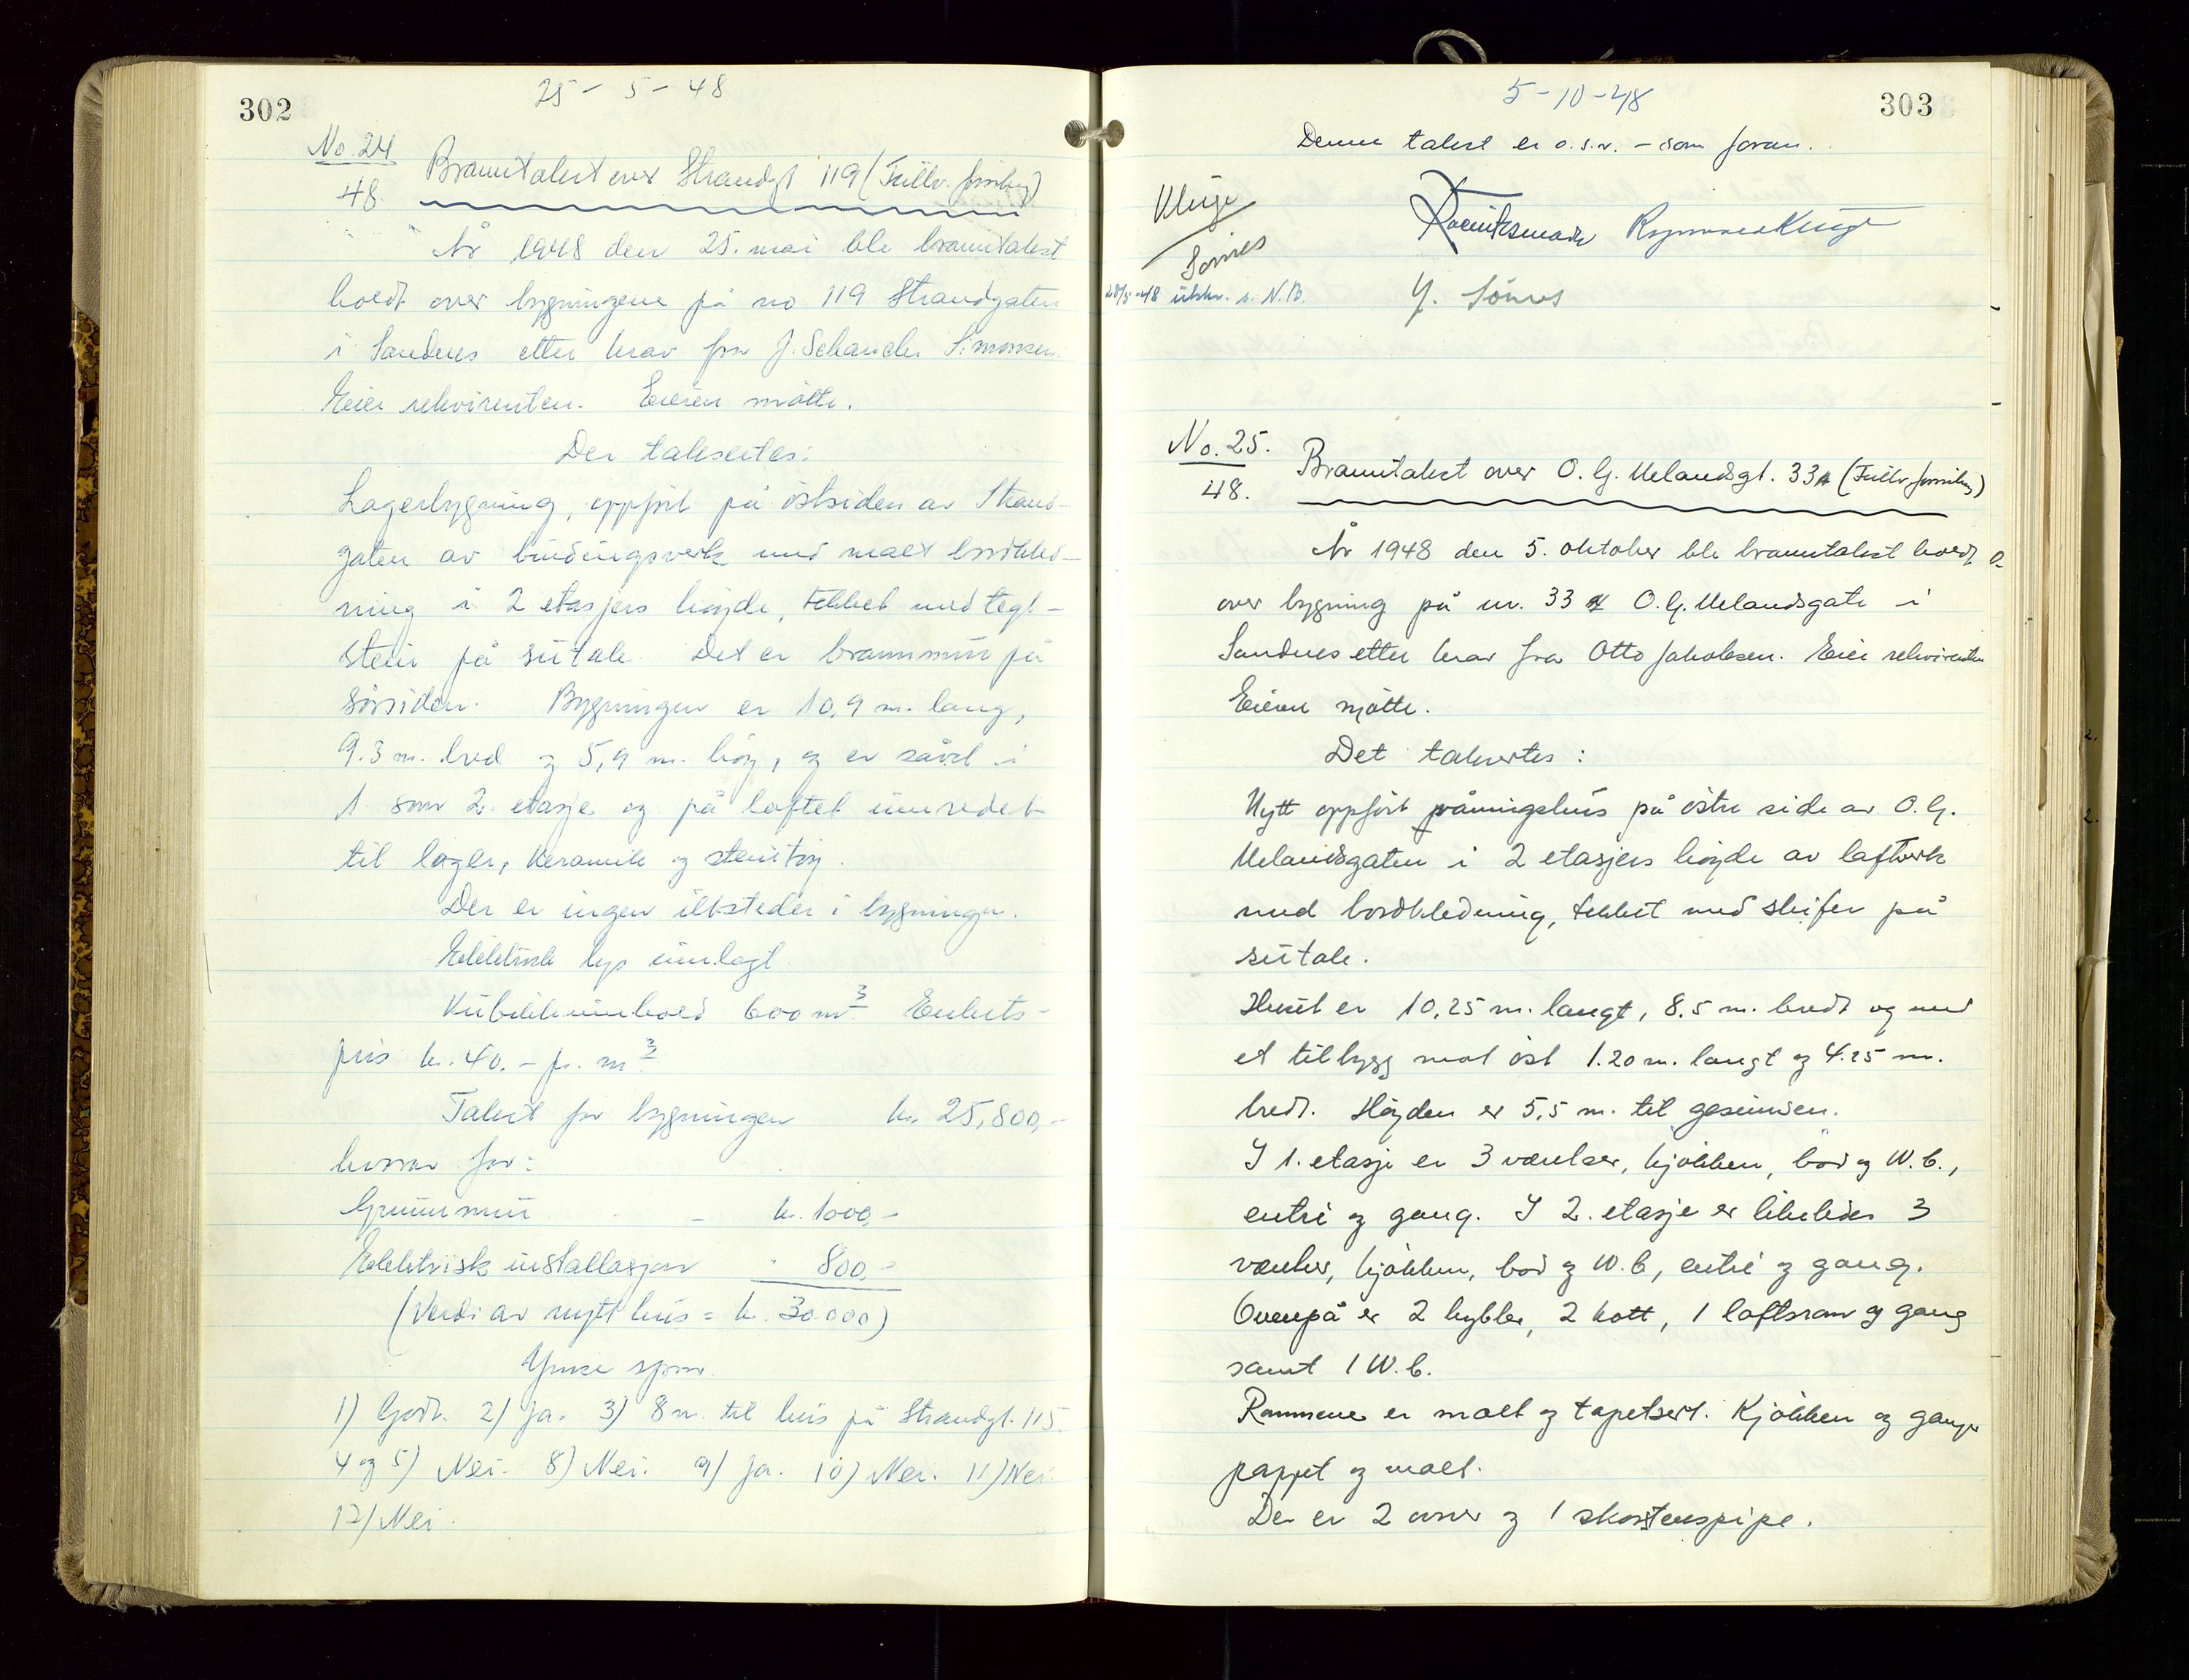 302
25 - 5 - 48
No. 24
48
Branntakst over Strandgt 119 (Frilly. forsikring)
År 1948 den 25. mai ble branntakst
holdt over bygningene på no 119 Strandgaten
i Sandnes etter krav fra J. Schancke Simonsen.
Eier rekvirenten. Eieren møtte.
Der takseites:
Lagerbygning, oppført på østsiden av Strand-
gaten av bindingsverk med malt bordkled-
ning i 2 etasjers høyde, tekket med tegl-
stein på sutak. Det er brannmur på
sørsiden. Bygningen er 10,9 m. lang,
9.3 m. bred og 5,9 m. høy, og er såvel i
1. som 2. etasje og på loftet innredet
til lager, keramikk og stentøy.
Der er ingen ildsteder i bygningen.
Elektrisk lys innlagt
Kubikkinnhold 600 m3 Enhets-
pris kr. 40.- pr. m3
Takst for bygningen kr. 25,800,-
hvorav for:
Grunnmur - kr. 1000,-
Elektrisk installasjon " 800,-
(Verdi av nytt hus = kr. 30.000)
Ymse spm.
1) Godt. 2) Ja. 3) 8 m. til hus på Strandgt. 115.
4 og 5) Nei. 8) Nei. 9) Ja. 10) Nei. 11) Nei.
12) Nei.
5-10-48
303
Denne takst er o.s.v. - som foran.
Kluge
Sømes
28/5-48 utskr. s. N.B.
Kluge
Y. Sømes
No. 25.
48.
Branntakst over O. G. Uelandsgt. 33A (Fullv. forsikring)
År 1948 den 5. oktober ble branntakst holdt
over bygning på nr. 33 A O. G. Uelandsgate i
Sandnes etter krav fra Otto Jakobsen. Eier rekvirenten
Eieren møtte.
Det taksertes:
Nytt oppført våningshus på østre side av O. G.
Uelandsgaten i 2 etasjers høyde av laftverk
med bordkledning, tekket med skifer på
sutak.
Huset er 10,25 m. langt, 8.5 m. bredt og med
et tilbygg mot øst 1.20 m. langt og 4.25 m.
bredt. Høyden er 5,5 m. til gesimsen.
I 1. etasje er 3 værelser, kjøkken, bod og W.C.,
entre og gang. I 2. etasje er likeledes 3
værelser, kjøkken, bod og W.C, entre og gang.
Ovenpå er 2 hybler, 2 kott, 1 loftsrom og gang
samt 1 W.C.
Rommene er malt og tapetsert. Kjøkken og ganger
pappet og malt.
Der er 2 ovner og 1 skorstenspipe.